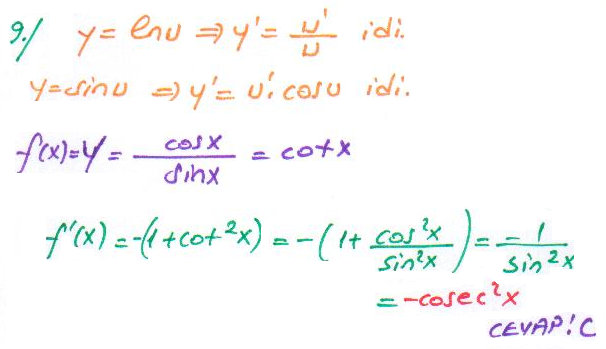 9./ y = lnu ⇒ y' = u'/u idi.
y = sinu ⇒ y' = u'. cosu idi.
f(x) = y = cosx/sinx = cotx
f'(x) = -(1+cot²x) = -(1+ cos²x/sin²x) = -1/sin²x
= -cosec²x
CEVAP: C